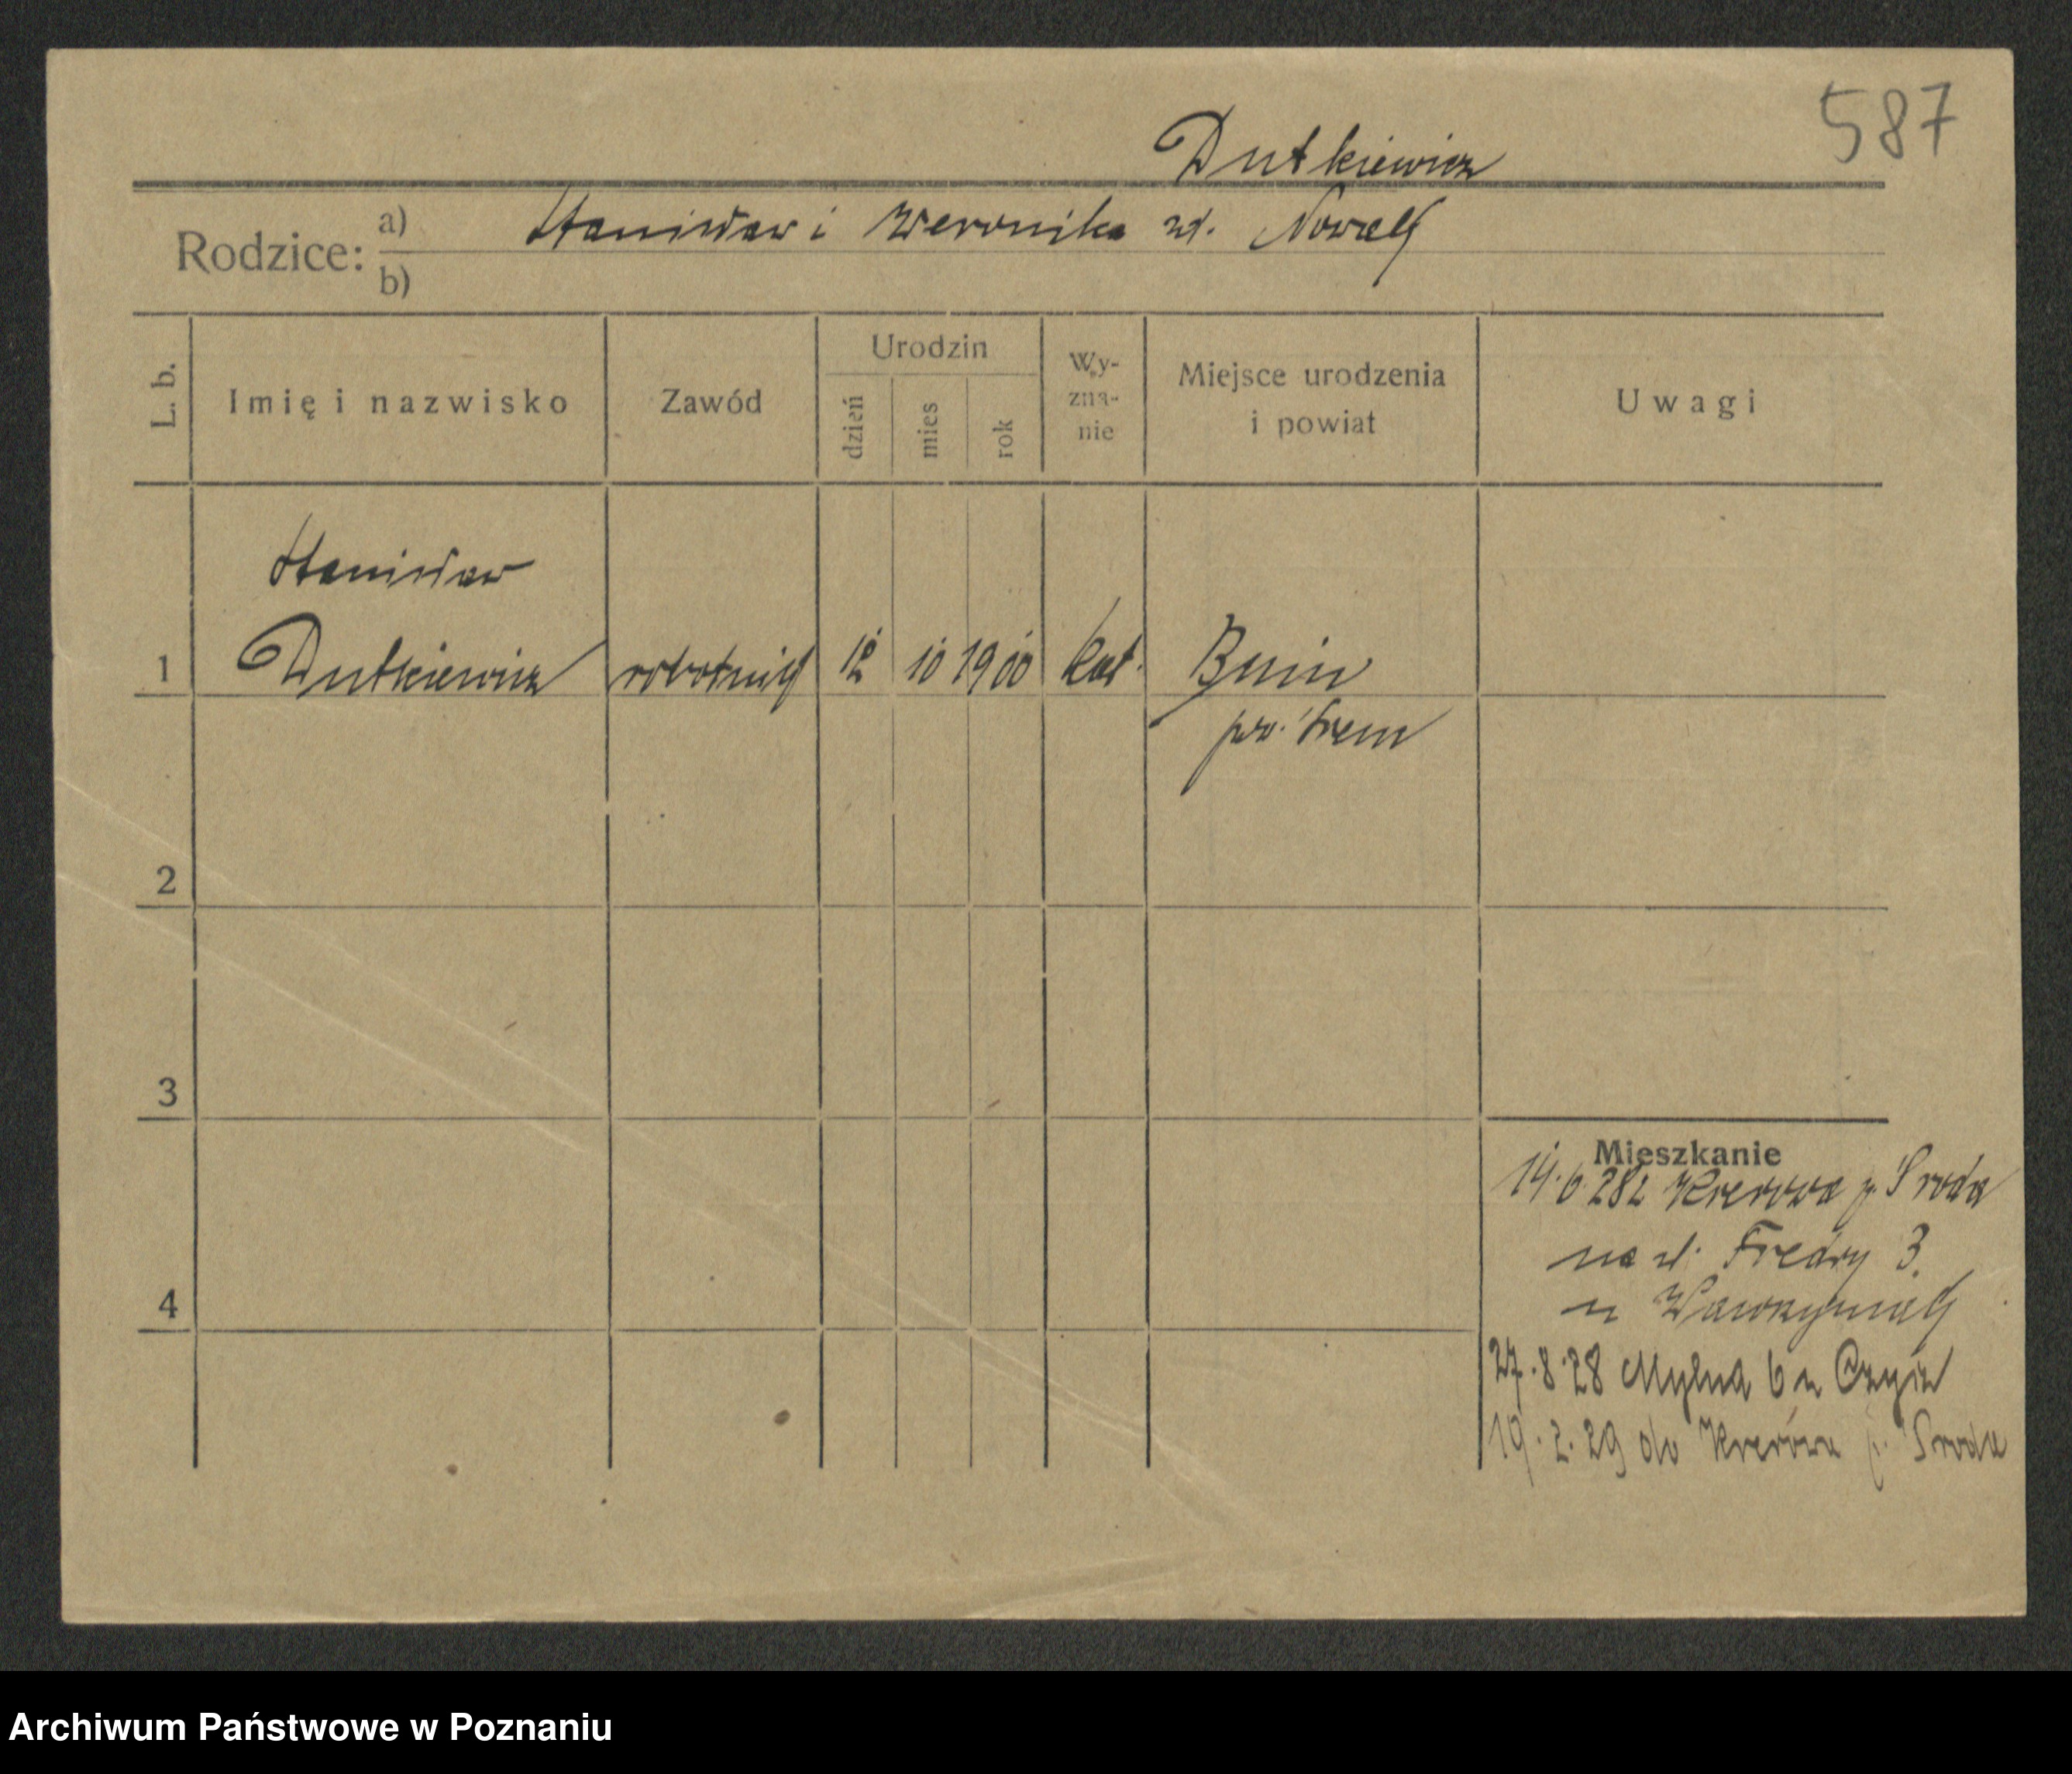 587
Dutkiewicz
Rodzice: a) Stanisław i Weronika zd. Nowak
b)
L. b. Imię i nazwisko Zawód Urodzin dzień mies rok Wy-zna-nie Miejsce urodzenia i powiat Uwagi
Stanisław
1 Dutkiewicz robotnik 12 10 1900 kat. Bnin
pow. Śrem
2
3
Mieszkanie
14.6.28 z Krerowa p. Środa
na ul. Fredry 3.
4 u Wawrzyniak
27.8.28 Mylna 6 u
19.2.29 do Krerowa p. Środa
Archiwum Państwowe w Poznaniu